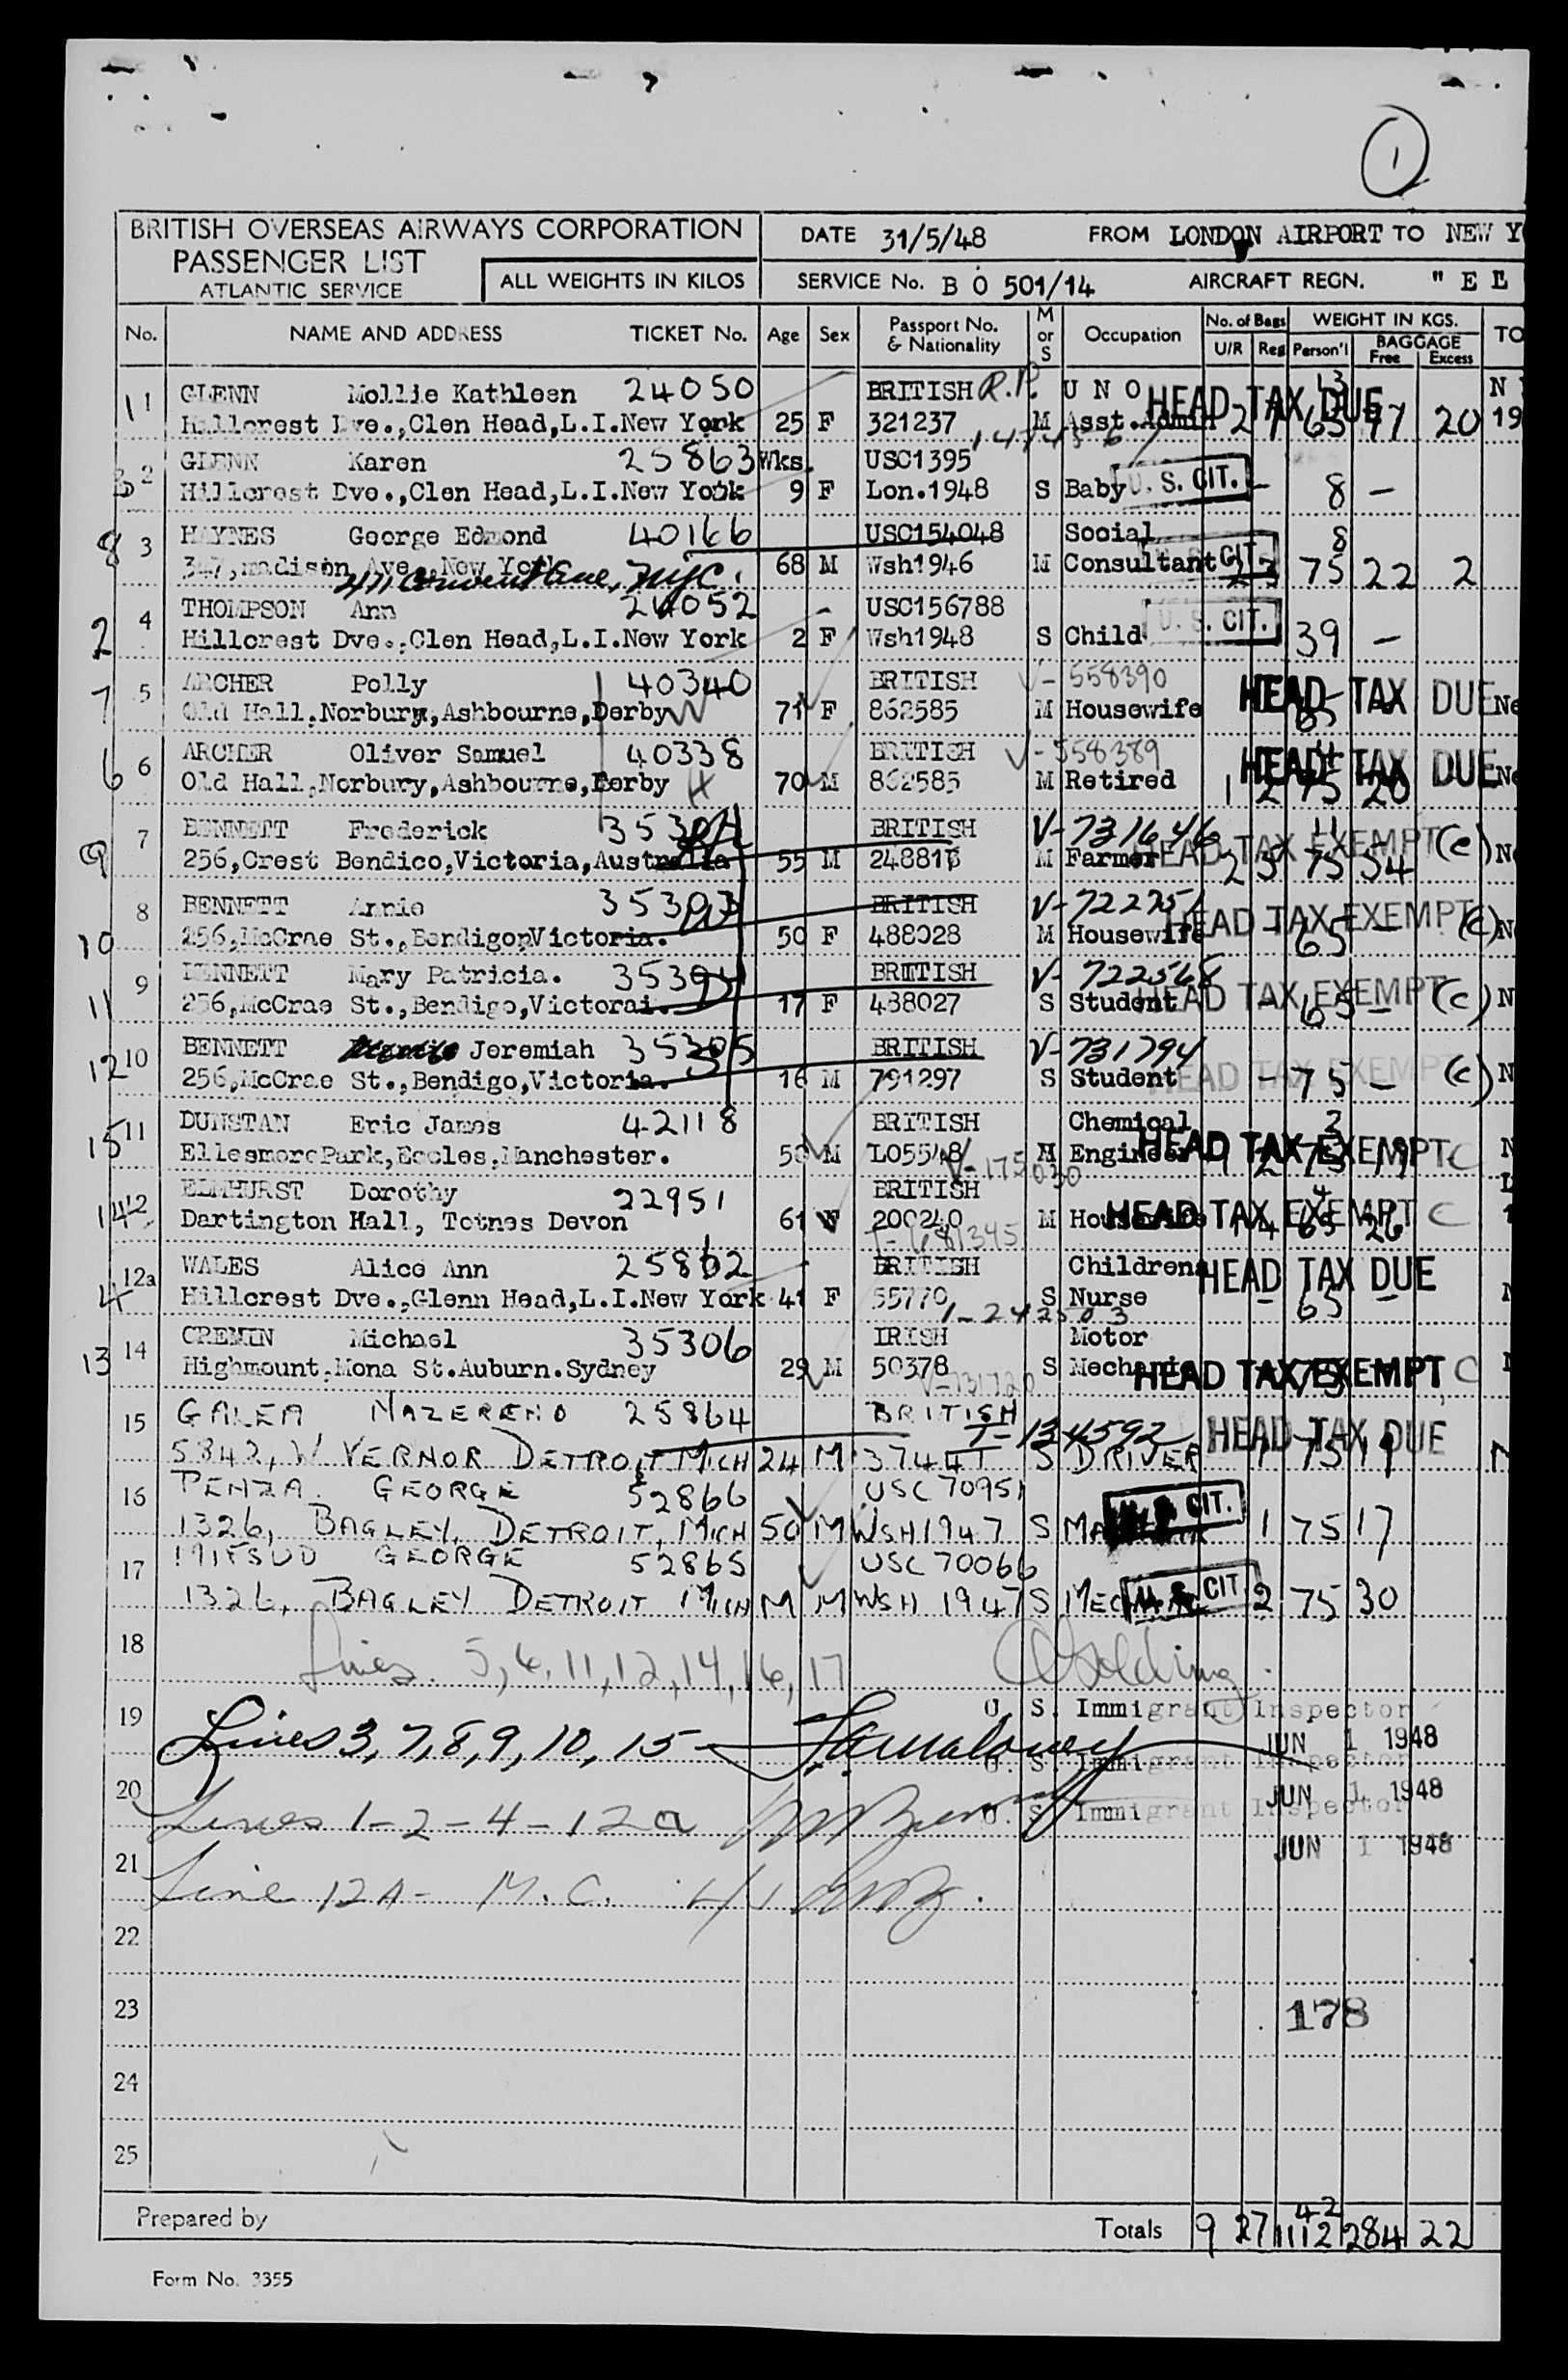 1
BRITISH OVERSEAS AIRWAYS CORPORATION
PASSENGER LIST
ATLANTIC SERVICE
ALL WEIGHTS IN KILOS
DATE 31/5/48 FROM LONDON AIRPORT TO NEW Y
SERVICE No. B O 501/14 AIRCRAFT REGN. " E L
No. NAME AND ADDRESS TICKET No. Age Sex Passport No. & Nationality M or S Occupation No. of Bags U/R Reg WEIGHT IN KGS. Person'l BAGGAGE Free Excess TO
1 1 GLENN Mollie Kathleen 24050 BRITISH R.P. U N O HEAD TAX DUE 13 N
Hillcrest Dve.,Clen Head,L.I.New York 25 F 321237 M Asst.Admin 2 7 65 97 20 19
3 2 GLENN Karen 25863 Wks. USC1395
Hillcrest Dve.,Clen Head,L.I.New York 9 F Lon.1948 S Baby U. S. CIT. - 8 -
8 3 HAYNES George Edmond 40166 USC154048 Social 8
347,madison Ave.,New York 68 M Wsh1946 M Consultant U. S. CIT. 2 3 75 22 2
411 Convent Ave, NYC.
2 4 THOMPSON Ann 24052 USC156788
Hillcrest Dve.,Clen Head,L.I.New York 2 F Wsh1948 S Child U. S. CIT. 39 -
7 5 ARCHER Polly 40340 BRITISH V-558390
Old Hall,Norbury,Ashbourne,Derby W 71 F 862585 M Housewife HEAD TAX DUE 65 Ne
6 6 ARCHER Oliver Samuel 40338 BRITISH V-558389 4
Old Hall,Norbury,Ashbourne,Derby H 70 M 862585 M Retired HEAD TAX DUE 1 2 75 20 Ne
9 7 BENNETT Frederick 35304 BRITISH V-731646 11
256,Crest Bendico,Victoria,Australia 55 M 248818 M Farmer HEAD TAX EXEMPT (c) 2 5 75 54 N
10 8 BENNETT Annie 35303 BRITISH V-722751
256,McCrae St.,BendigopVictoria. 50 F 488028 M Housewife HEAD TAX EXEMPT (c) - 65 - N
11 9 BENNETT Mary Patricia. 35304 BRITISH V-722568
256,McCrae St.,Bendigo,Victorai. 17 F 488027 S Student HEAD TAX EXEMPT (c) - 65 - N
12 10 BENNETT Jeremiah 35305 BRITISH V-731794
256,McCrae St.,Bendigo,Victoria. 16 M 791297 S Student HEAD TAX EXEMPT (c) - 75 - N
15 11 DUNSTAN Eric James 42118 BRITISH Chemical 2
EllesmerePark,Eccles,Manchester. 50 M L05548 M Engineer HEAD TAX EXEMPT C 1 2 75 19 N
V-175030
14 12 ELMHURST Dorothy 22951 BRITISH 4
Dartington Hall, Totnes Devon 61 F 200240 M Housewife HEAD TAX EXEMPT C 1 4 65 26
T-681345
4 12a WALES Alice Ann 25862 BRITISH Childrens HEAD TAX DUE
Hillcrest Dve.,Glenn Head,L.I.New York 41 F 55770 S Nurse - 65 -
1-242503
13 14 CREMIN Michael 35306 IRISH Motor
Highmount,Mona St.Auburn.Sydney 29 M 50378 S Mechanic HEAD TAX EXEMPT C 75
V-731720
15 GALEA NAZERENO 25864 BRITISH T-134592 HEAD TAX DUE
5842, W VERNOR DETROIT MICH 24 M 37441 S DRIVER 1 75 19
16 PENZA GEORGE 52866 USC 70951
1326, BAGLEY, DETROIT, MICH 50 M WSH1947 S U. S. CIT. 1 75 17
17 GEORGE 52865 USC 70066
1326, BAGLEY DETROIT MICH M M WSH 1947 S U. S. CIT. 2 75 30
18 Lines. 5,6,11,12,14,16,17 Golding
U. S. Immigrant Inspector
19 Lines 3,7,8,9,10,15 - JUN 1 1948
U. S. Immigrant Inspector
20 Lines 1-2-4-12a JUN 1 1948
U. S. Immigrant Inspector
JUN 1 1948
21 Line 12A- M.C.
22
23 178
24
25
Prepared by Totals 9 27 1112 42 284 22
Form No. 3355